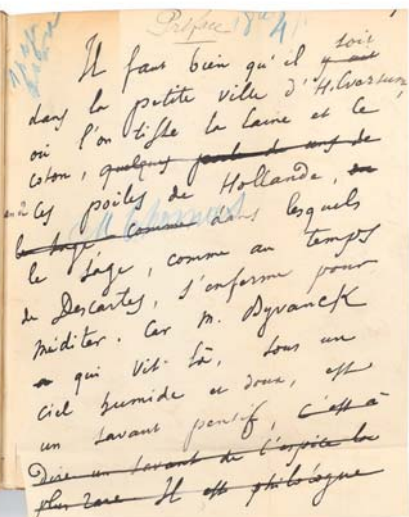 Préface
Il faut bien qu'il soit
y ait
dans la petite ville d'Hilversum,
où l'on tisse la laine et le
coton, quelques poiles de
ces poiles de Hollande,
le sage comme dans lesquels
le sage, comme au temps
de Descartes, s'enferme pour
méditer. Car M. Byvanck
qui vit là, sous un
ciel humide et doux, est
un savant pensif, c'est à
dire un savant de l'espèce la
plus rare Il est philologue